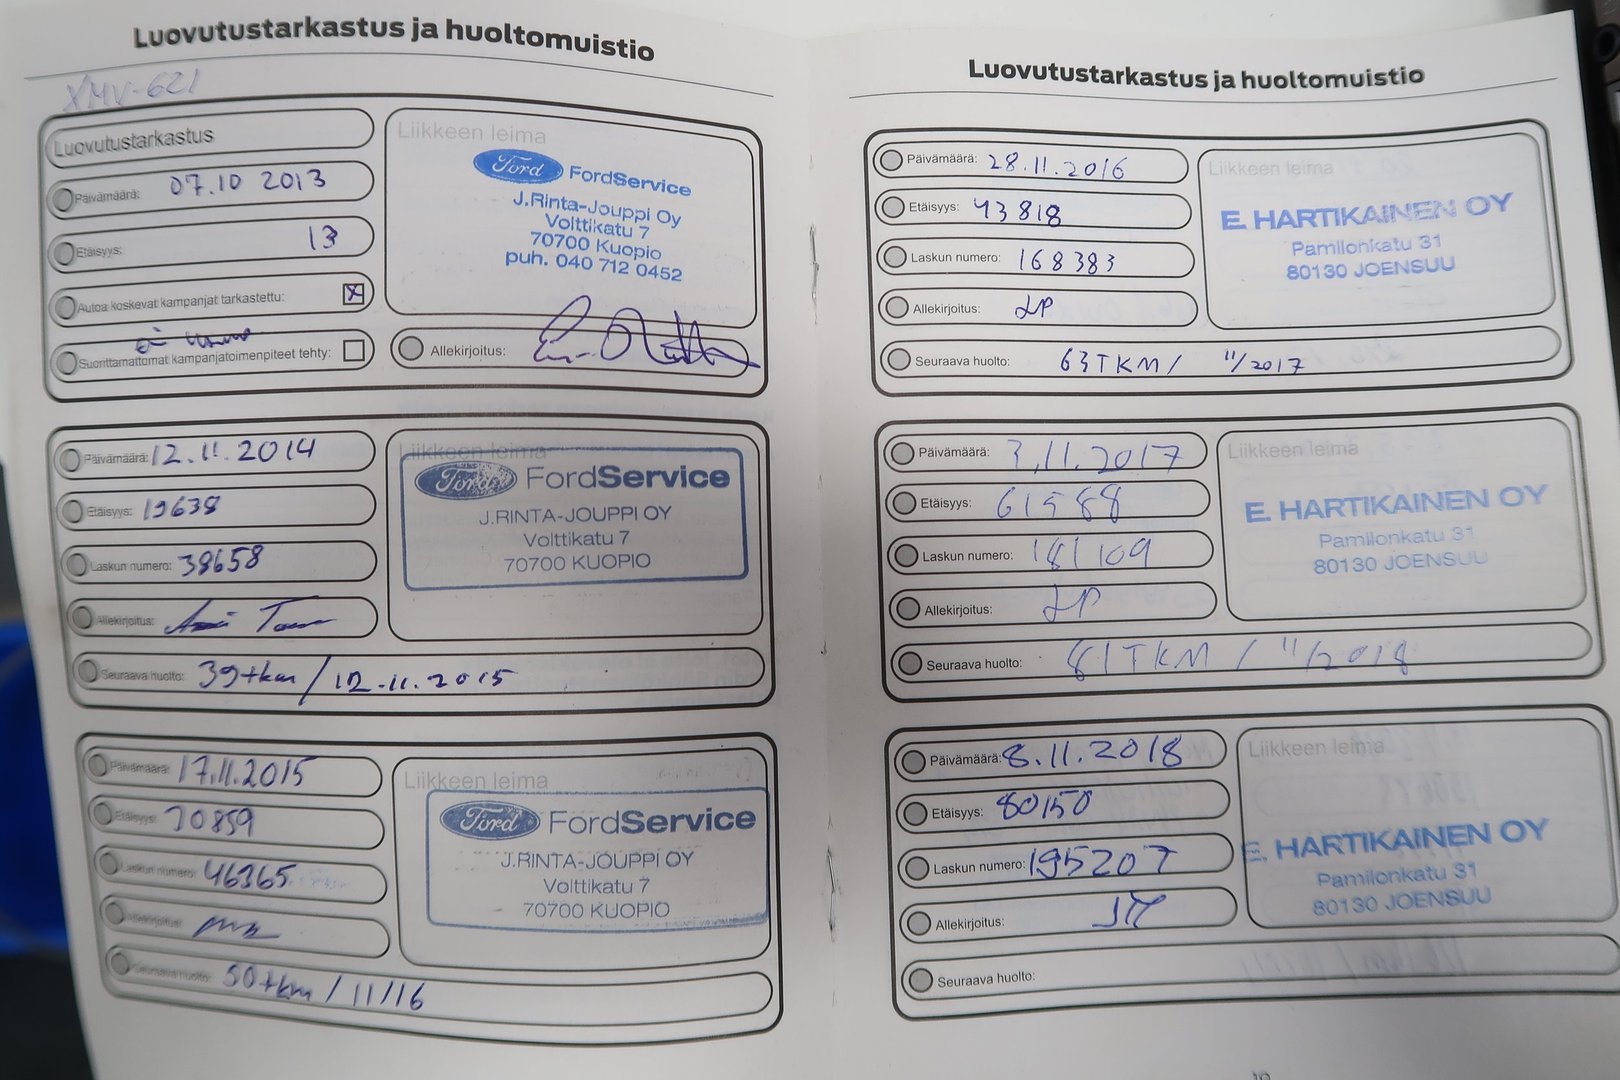 Luovutustarkastus ja huoltomuistio
XMV-621
Luovutustarkastus
Päivämäärä: 07.10 2013
Etäisyys: 13
Autoa koskevat kampanjat tarkastettu: X
Suorittamattomat kampanjatoimenpiteet tehty:
Liikkeen leima
Ford FordService
J.Rinta-Jouppi Oy
Volttikatu 7
70700 Kuopio
puh. 040 712 0452
Allekirjoitus:
Päivämäärä: 12.11.2014
Etäisyys: 19638
Laskun numero: 38658
Allekirjoitus:
Seuraava huolto: 39tkm / 12.11.2015
Liikkeen leima
Ford FordService
J.RINTA-JOUPPI OY
Volttikatu 7
70700 KUOPIO
Päivämäärä: 17.11.2015
Etäisyys: 30859
Laskun numero: 46365
Allekirjoitus:
Seuraava huolto: 50tkm / 11/16
Liikkeen leima
Ford FordService
J.RINTA-JOUPPI OY
Volttikatu 7
70700 KUOPIO
Luovutustarkastus ja huoltomuistio
Päivämäärä: 28.11.2016
Etäisyys: 43818
Laskun numero: 168383
Allekirjoitus: LP
Seuraava huolto: 63TKM / 11/2017
Liikkeen leima
E. HARTIKAINEN OY
Pamilonkatu 31
80130 JOENSUU
Päivämäärä: 3.11.2017
Etäisyys: 61588
Laskun numero: 181109
Allekirjoitus: LP
Seuraava huolto: 81TKM / 11/2018
Liikkeen leima
E. HARTIKAINEN OY
Pamilonkatu 31
80130 JOENSUU
Päivämäärä: 8.11.2018
Etäisyys: 80150
Laskun numero: 195207
Allekirjoitus:
Seuraava huolto:
Liikkeen leima
E. HARTIKAINEN OY
Pamilonkatu 31
80130 JOENSUU